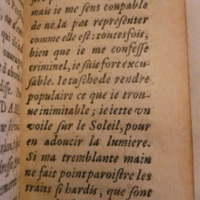 mais ie me sent coupable
de ne la pas representer
comme elle est: toutesfois,
bien que ie me confesse
criminel, ie suis fort excu-
sable. Ie tasche de rendre
populaire ce que ie trou-
ue inimitable; ie iette vn
voile sur le Soleil, pour
en adoucir la lumiere.
Si ma tremblante main
ne fait point paroistre les
trains si hardis, que sont